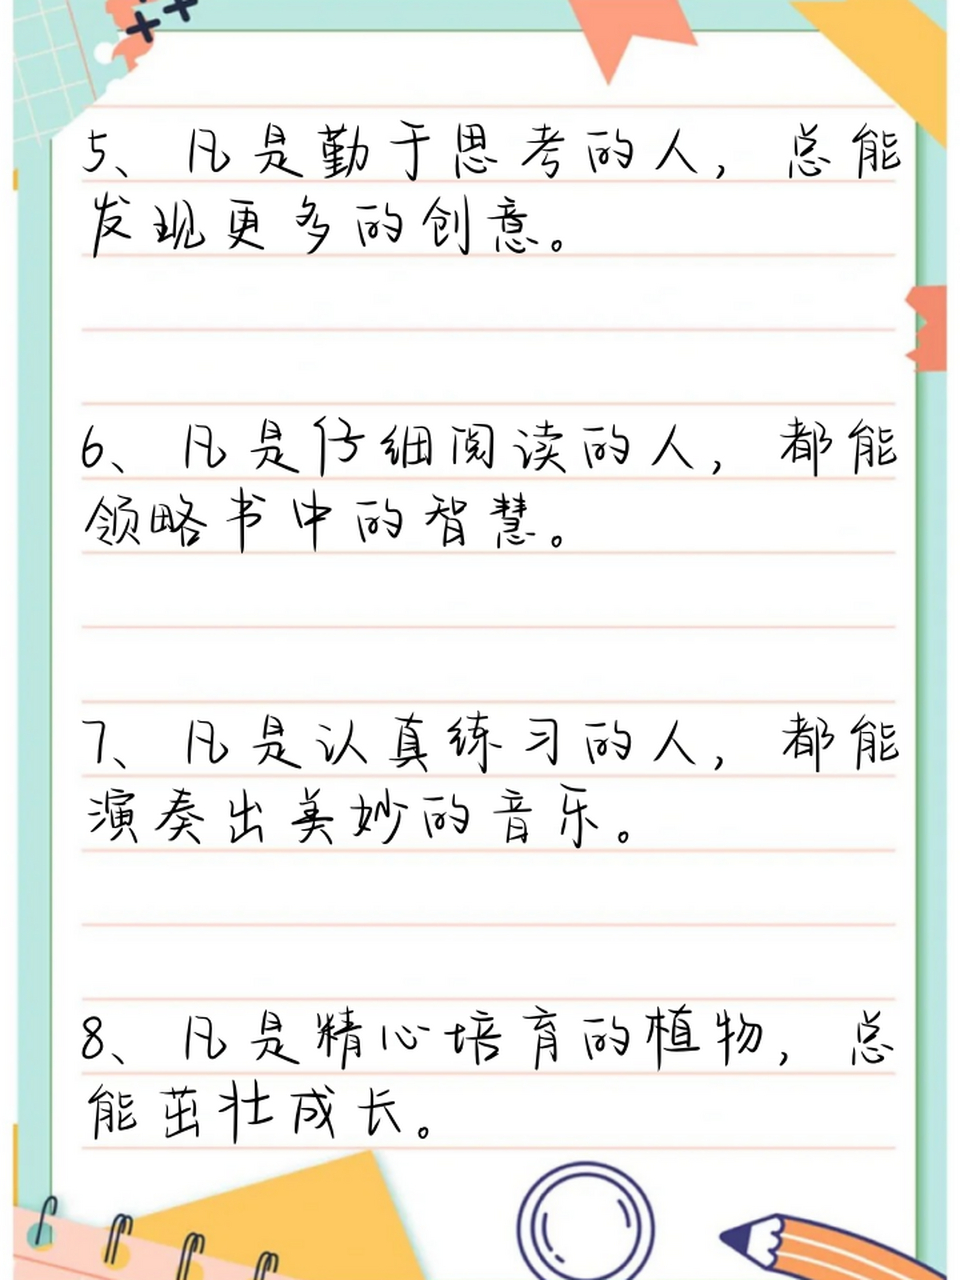 5、凡是勤于思考的人，总能
发现更多的创意。
6、凡是仔细阅读的人，都能
领略书中的智慧。
7、凡是认真练习的人，都能
演奏出美妙的音乐。
8、凡是精心培育的植物，总
能茁壮成长。